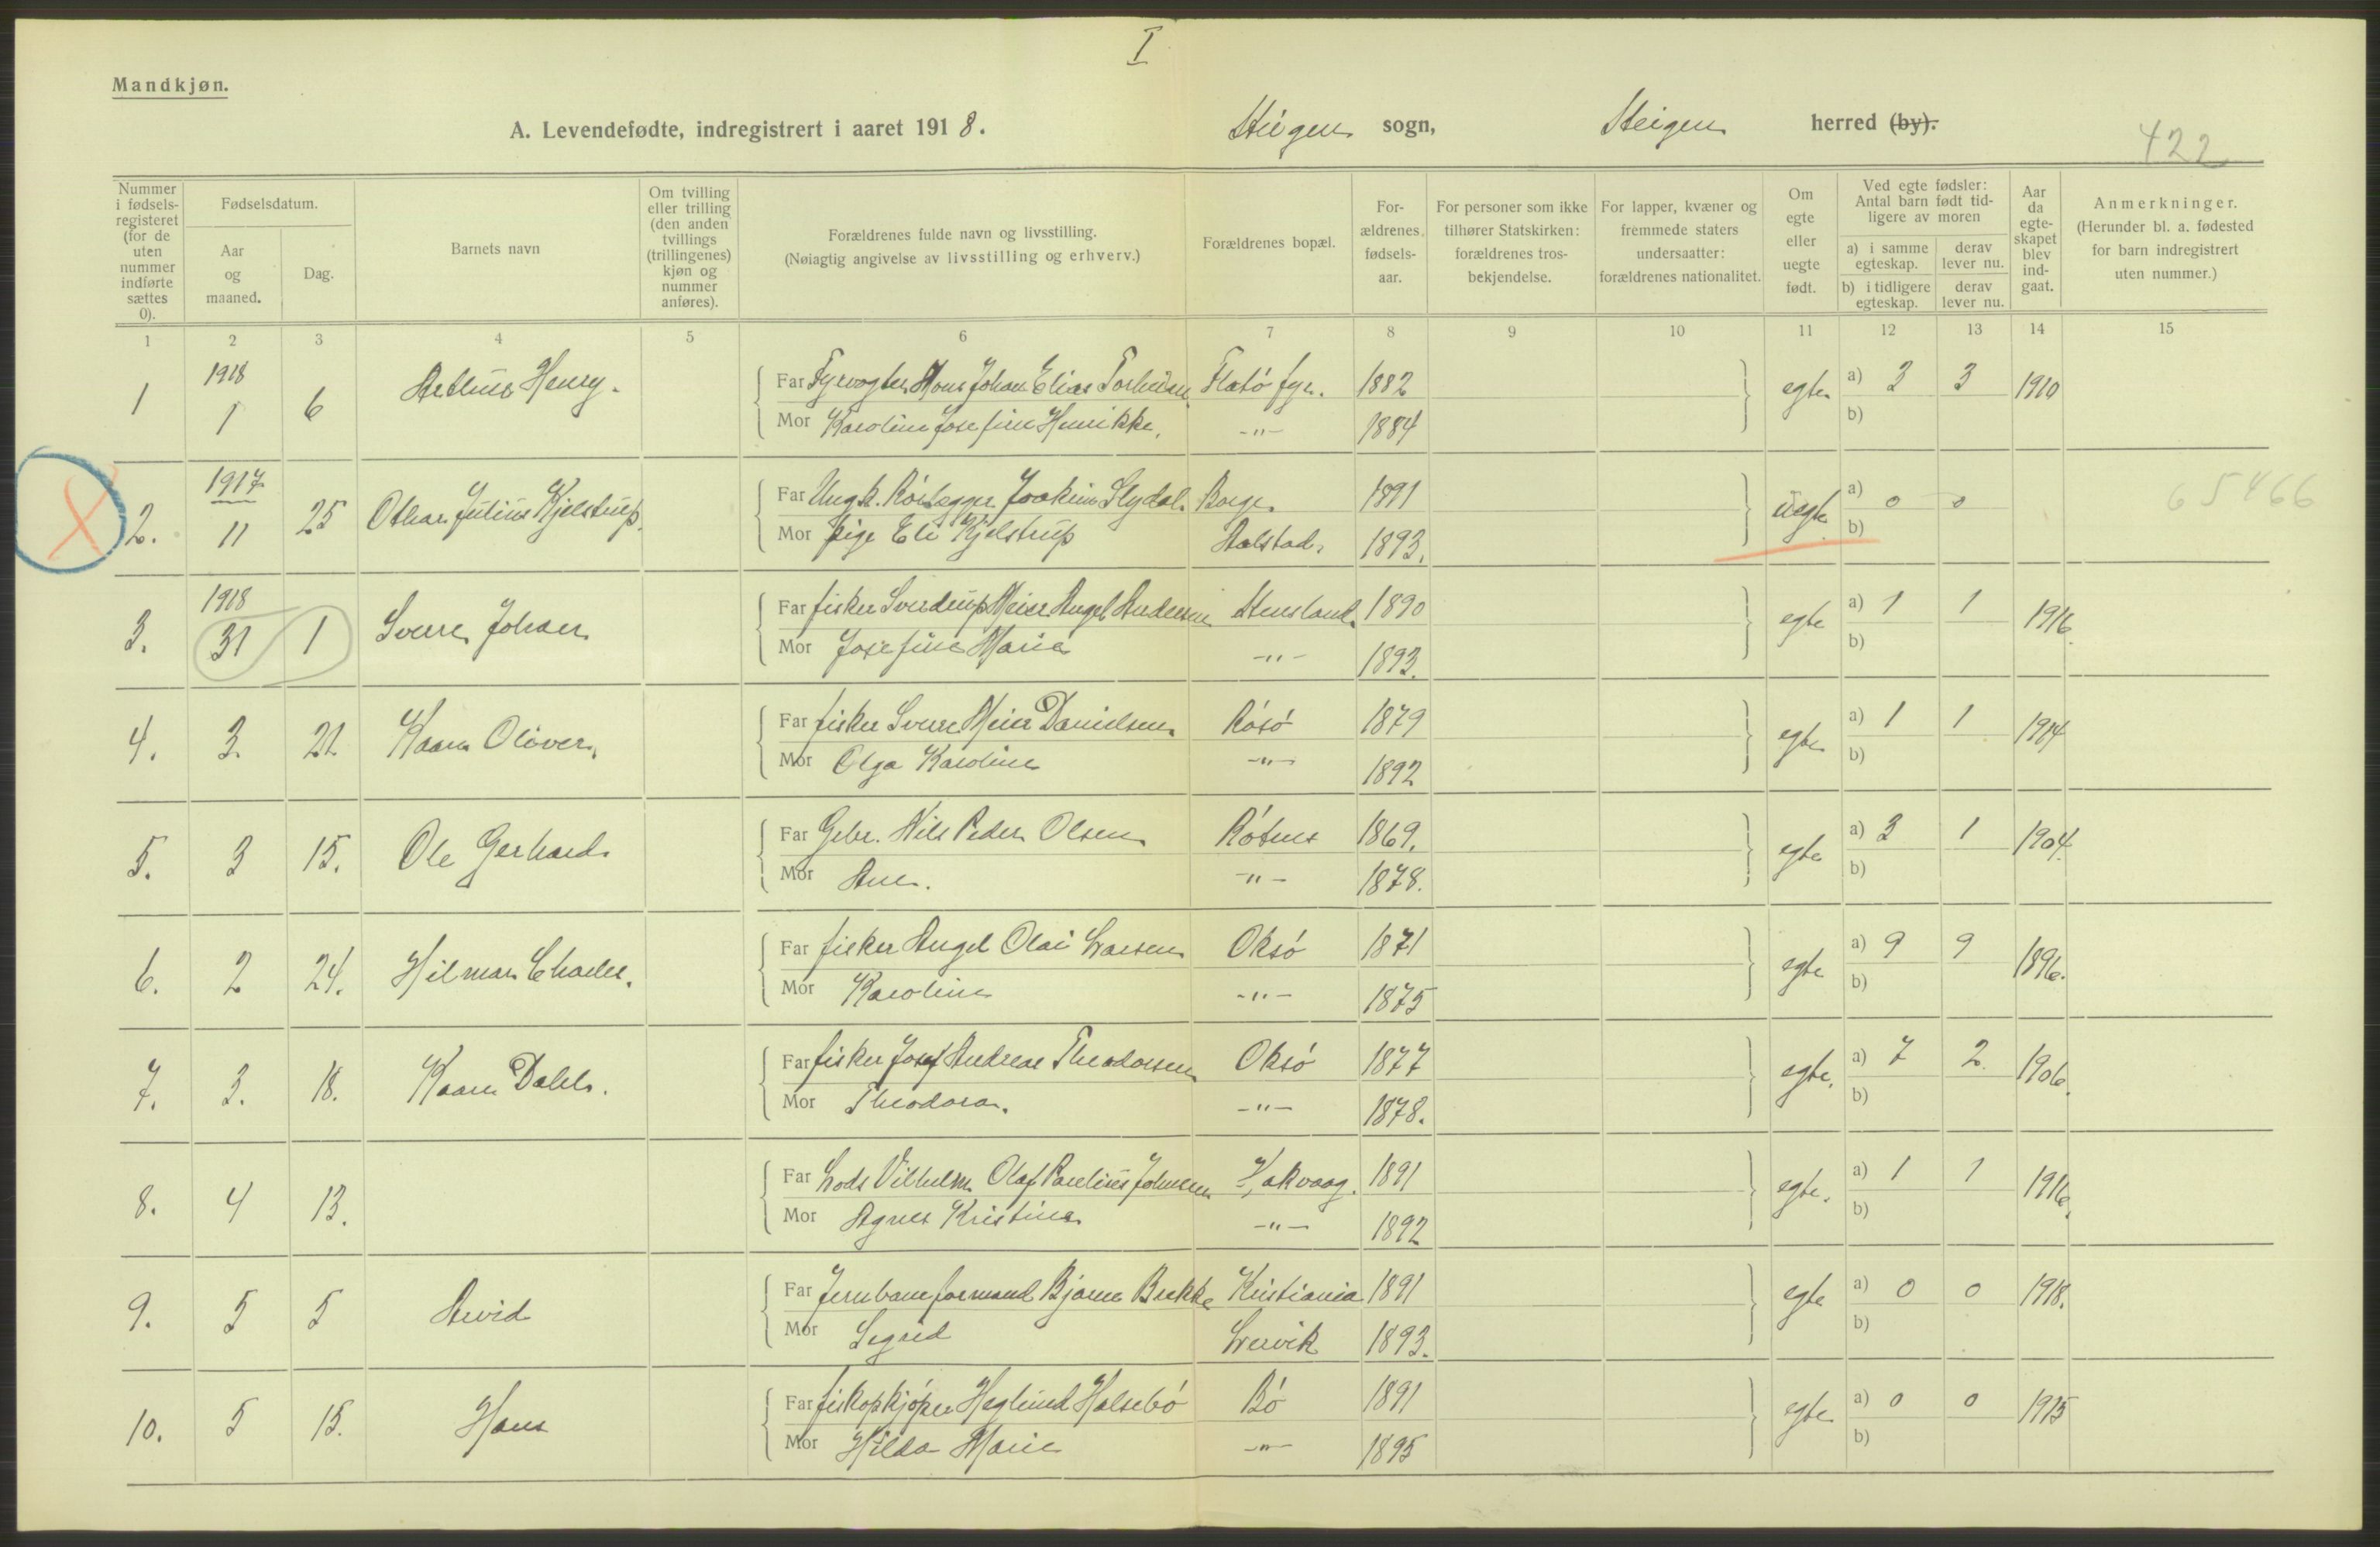 I
Mandkjøn.
A. Levendefødte, indregistrert i aaret 1918. Steigen sogn, Steigen herred (by).
422
Nummer i fødselsregisteret (for de uten nummer indførte sættes 0).
Fødselsdatum.
Aar og maaned.
Dag.
Barnets navn
Om tvilling eller trilling (den anden tvillings (trillingenes) kjøn og nummer anføres).
Forældrenes fulde navn og livsstilling.
(Nøiagtig angivelse av livsstilling og erhverv.)
Forældrenes bopæl.
Forældrenes fødselsaar.
For personer som ikke tilhører Statskirken: forældrenes trosbekjendelse.
For lapper, kvæner og fremmede staters undersaatter: forældrenes nationalitet.
Om egte eller uegte født.
Ved egte fødsler: Antal barn født tidligere av moren
a) i samme egteskap.
derav lever nu.
b) i tidligere egteskap.
derav lever nu.
Aar da egteskapet blev indgaat.
Anmerkninger.
(Herunder bl. a. fødested for barn indregistrert uten nummer.)
1 2 3 4 5 6 7 8 9 10 11 12 13 14 15
1 1918 1 6 Arthur Henry. Far Fyrvogter Hans Johan Elias Flatö fyr. 1882 egte a) 3 3 1910
Mor Karoline Josefine Henrikke. -"- 1884 b)
2. 1917 11 25 Othar Julius Kjelstrup. Far Ungk. Joakim Slydal. Borge. 1891 uegte a) 0 0 65466
Mor pige Eli Kjelstrup Aalstad. 1893. b)
3. 1918 31 1 Sverre Johan Far fisker Sverdrup Meier Angel Andersen Stensland. 1890 egte a) 1 1 1916.
Mor Josefine Marie -"- 1893. b)
4. 3. 21. Kaare Oliver. Far fisker Sverre Meier Danielsen Rösö 1879 egte a) 1 1 1914
Mor Olga Karoline -"- 1892 b)
5. 3 15. Ole Gerhard. Far Gbr. Nils Peder Olsen Rötnes 1869. egte a) 3 1 1904.
Mor Ane. -"- 1878. b)
6. 2 24. Hilmar Charles. Far fisker Angel Olai Larsen Oksö 1871 egte a) 9 9 1896.
Mor Karoline -"- 1875 b)
7. 3. 18. Kaare Far fisker Josef Andreas Theodorsen Oksö 1877 egte. a) 7 2 1906.
Mor Theodora. -"- 1878. b)
8. 4 13. Far Lods Vilhelm Olaf Paulius Johnsen 1891 egte. a) 1 1 1916.
Mor Agnes Kristine -"- 1892 b)
9. 5 5 Arvid Far Jernbaneformand Bjarne Brekke Kristiania 1891 egte a) 0 0 1918.
Mor Sigrid Leirvik 1893. b)
10. 5 15. Hans Far fiskopkjöper Haglund Halsebö Bö 1891 egte a) 0 0 1915
Mor Hilda Marie -"- 1895 b)